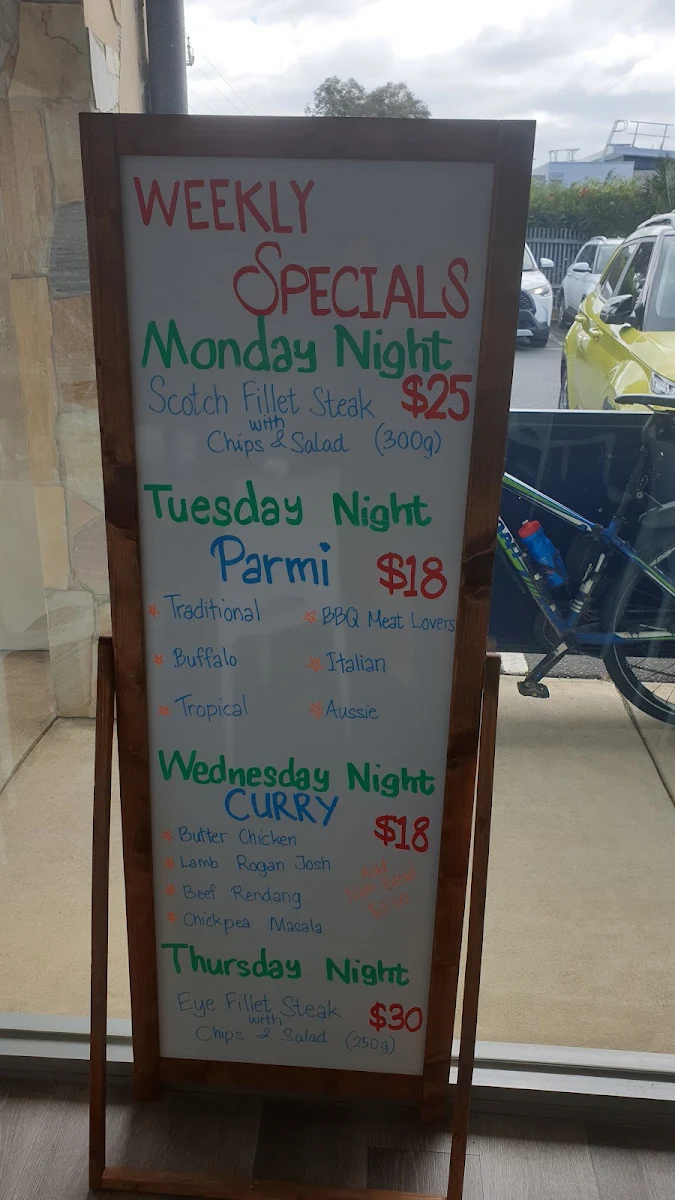 WEEKLY
SPECIALS
Monday Night
Scotch Fillet Steak $25
with
Chips & Salad (300g)
Tuesday Night
Parmi $18
Traditional
BBQ Meat Lovers
Buffalo
Italian
Tropical
Aussie
Wednesday Night
CURRY
$18
Butter Chicken
Lamb Rogan Josh
Beef Rendang
Chickpea Masala
Add
Thursday Night
Eye Fillet Steak $30
with
Chips & Salad (250g)